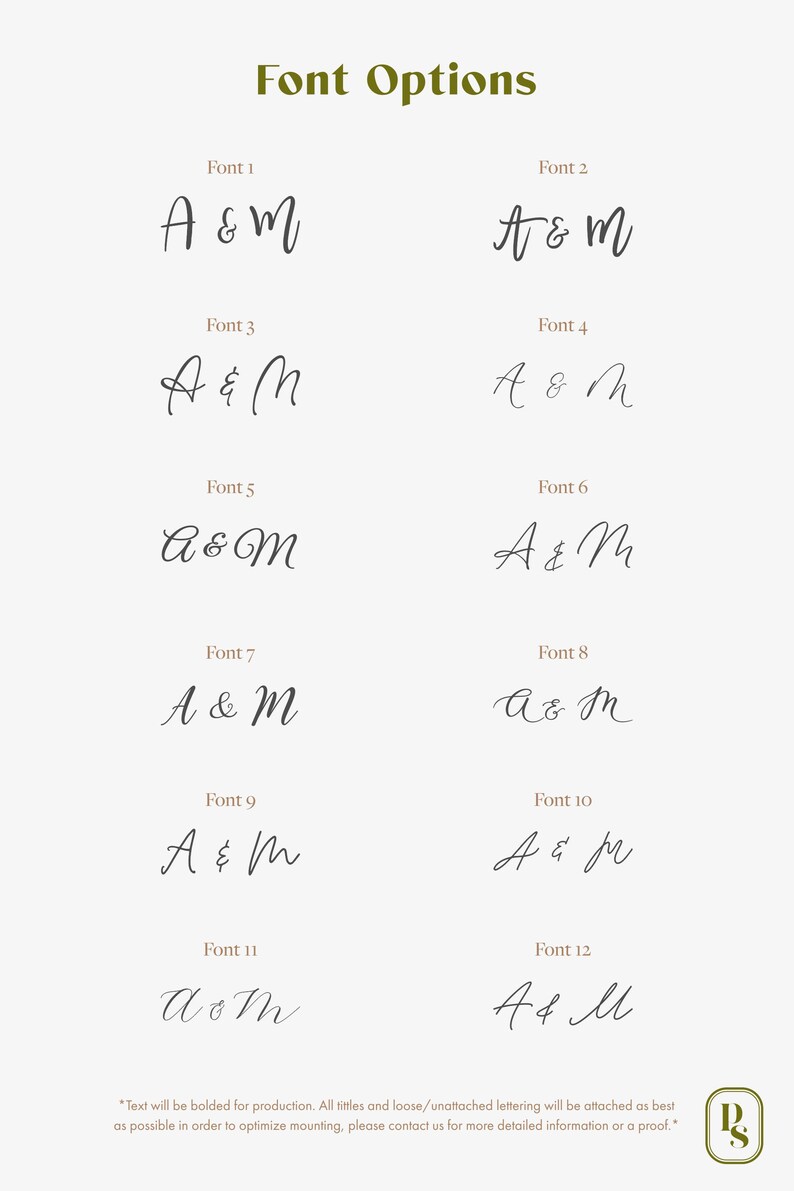 Font Options
Font 1
A & M
Font 2
A & M
Font 3
A & M
Font 4
A & M
Font 5
A & M
Font 6
A & M
Font 7
A & M
Font 8
A & M
Font 9
A & M
Font 10
A & M
Font 11
A & M
Font 12
A & M
*Text will be bolded for production. All tittles and loose/unattached lettering will be attached as best
as possible in order to optimize mounting, please contact us for more detailed information or a proof.*
DS